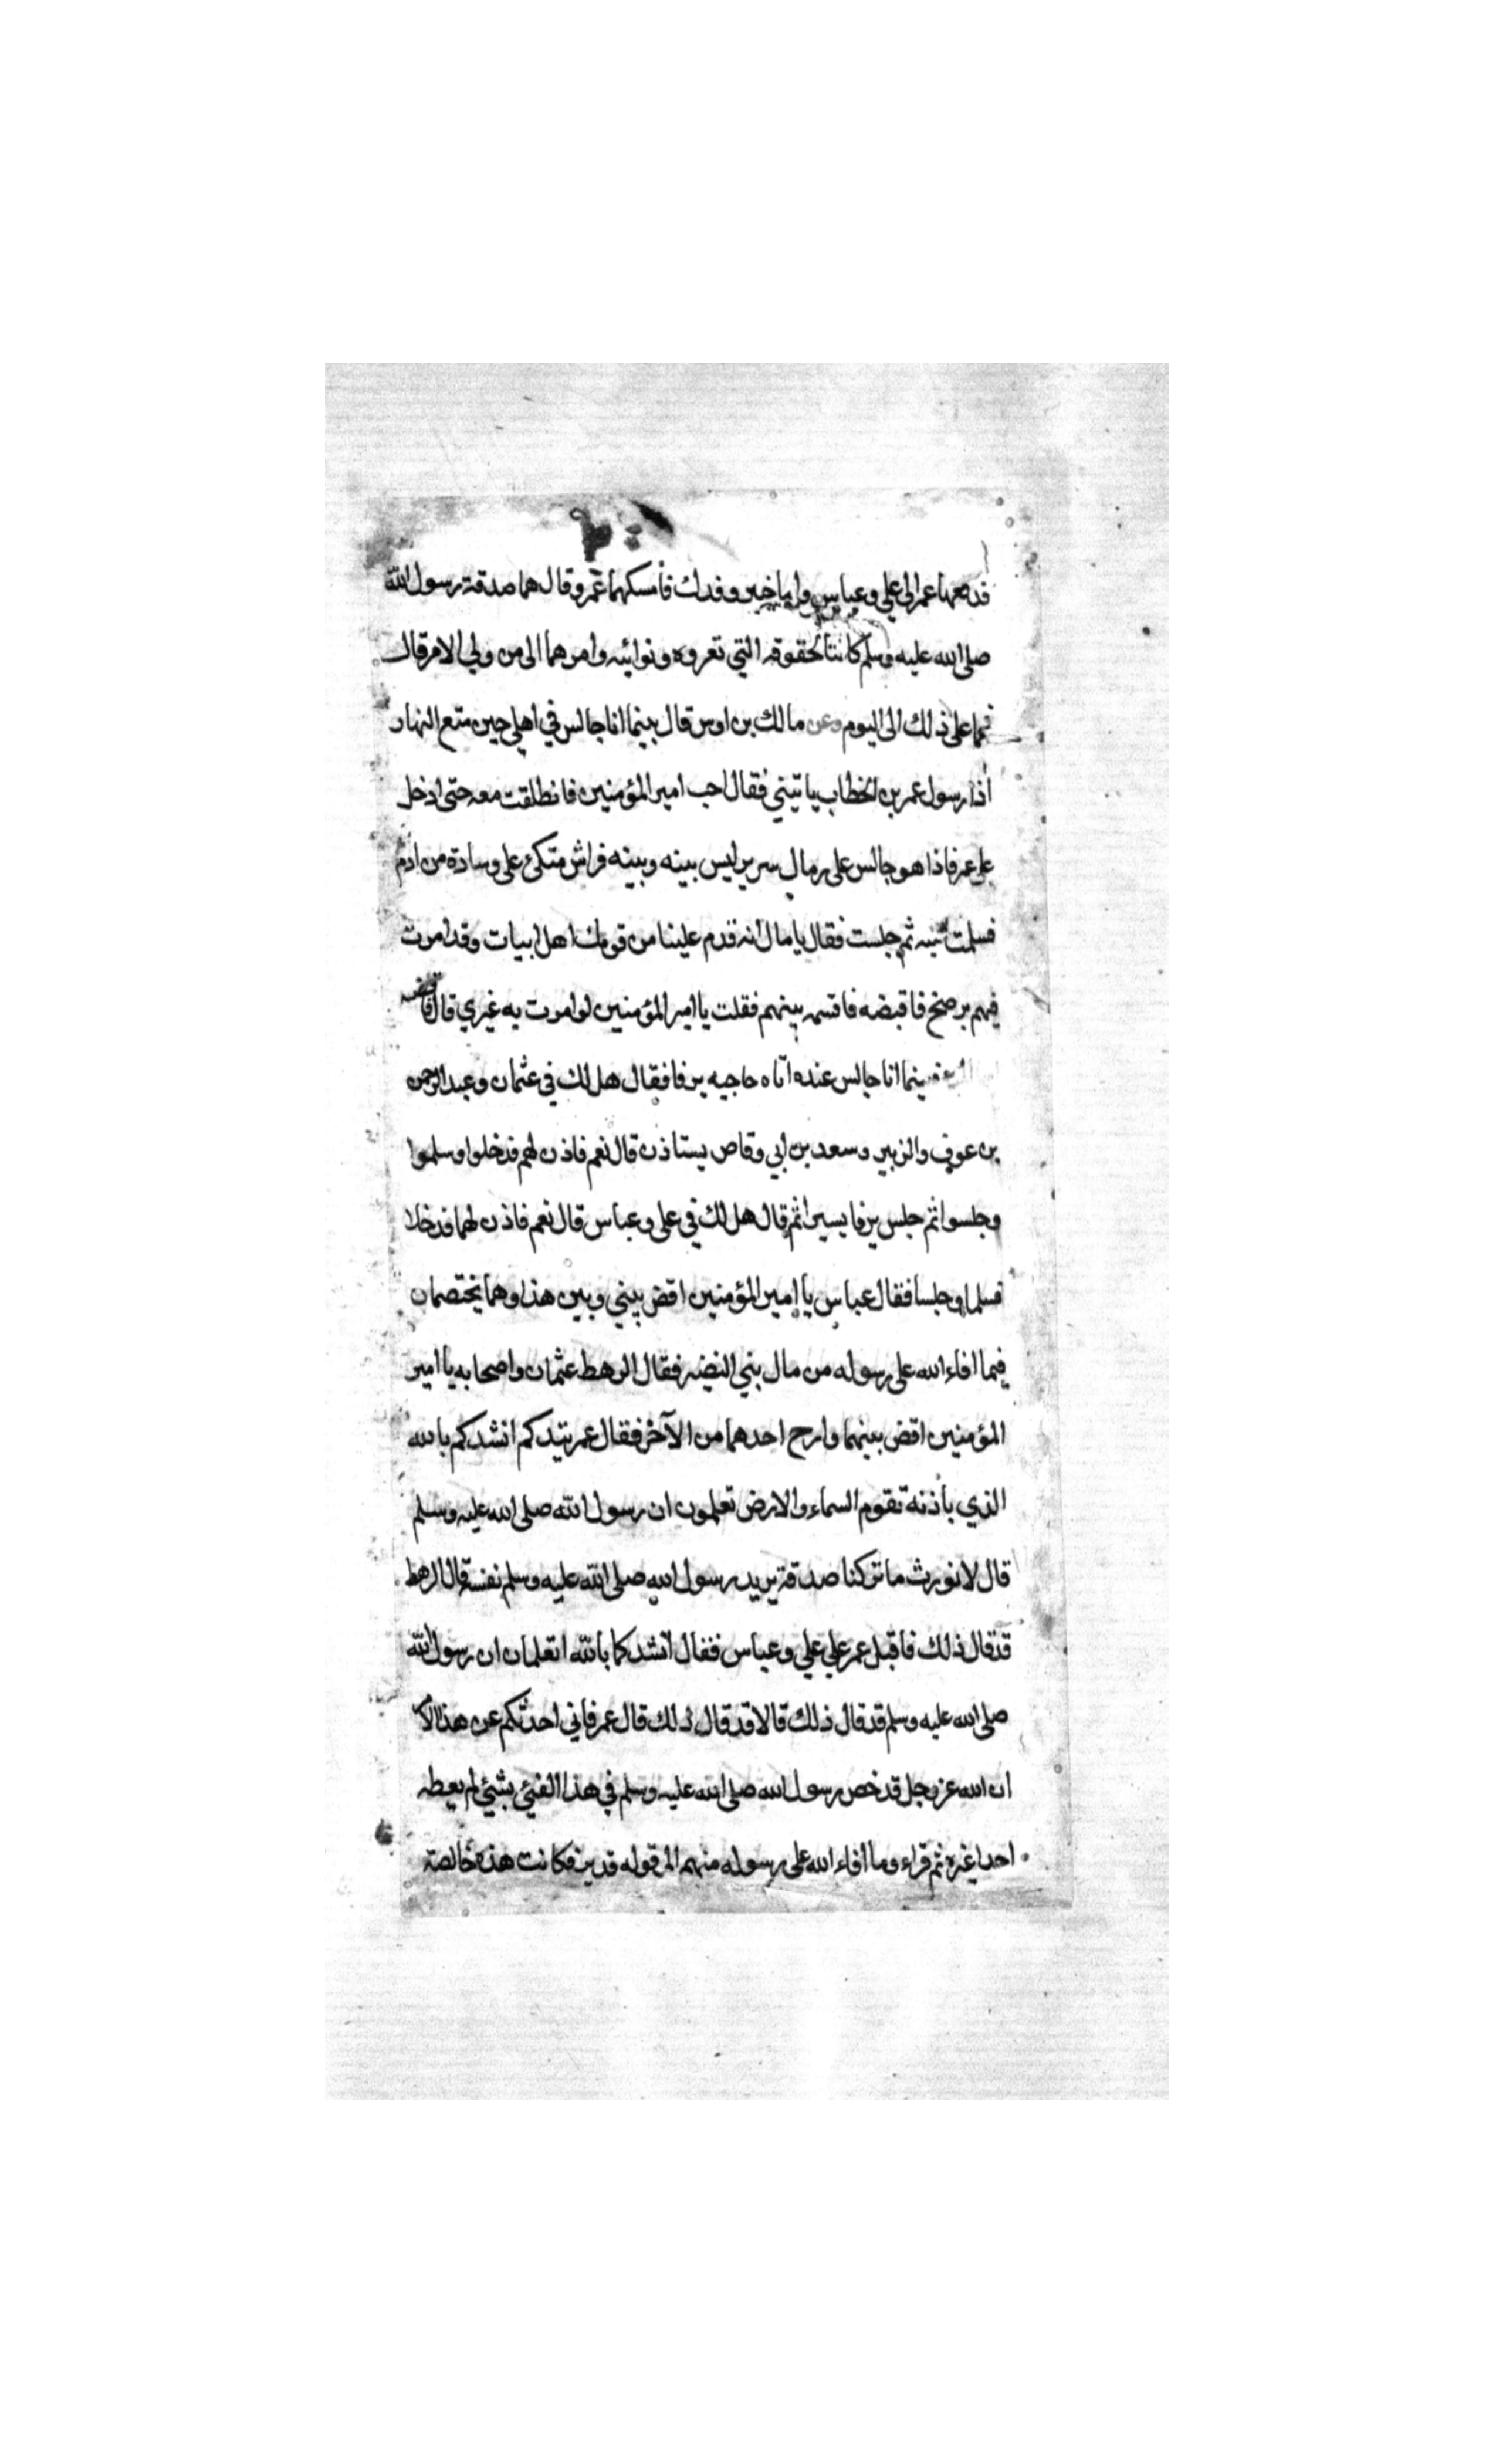 فدفعها عمر الى علي وعباس واما خيبر وفدك فأمسكهما عمر وقال هما صدقة رسول الله
صلى الله عليه وسلم كانتا لحقوقه التي تعروه ونوائبه وامرهما الى من ولي الامر قال
فهما على ذلك الى اليوم وعن مالك بن اوس قال بينما انا جالس في اهلي حين متع النهار
اذا رسول عمر بن الخطاب ياتيني فقال اجب امير المؤمنين فانطلقت معه حتى ادخل
على عمر فاذا هو جالس على رمال سرير ليس بينه وبينه فراش متكئ على وسادة من ادم
فسلمت عليه ثم جلست فقال يا مال انه قدم علينا من قومك اهل ابيات وقد امرت
فيهم برضخ فاقبضه فاقسمه بينهم فقلت يا امير المؤمنين لو امرت به غيري قال فاقبضه
فبينما انا جالس عنده اتاه حاجبه يرفا فقال هل لك في عثمان وعبد الرحمن
بن عوف والزبير وسعد بن ابي وقاص يستاذن قال نعم فاذن لهم فدخلوا وسلموا
وجلسوا ثم جلس يرفا يسيرا ثم قال هل لك في على وعباس قال نعم فاذن لهما فدخلا
فسلما وجلسا فقال عباس يا امير المؤمنين اقض بيني وبين هذا وهما يختصمان
فيما افاء الله على رسوله من مال بني النضير فقال الرهط عثمان واصحابه يا امير
المؤمنين اقض بينهما وارح احدهما من الآخر فقال عمر تيدكم انشدكم بالله
الذي باذنه تقوم السماء والارض تعلمون ان رسول الله صلى الله عليه وسلم
قال لا نورث ما تركنا صدقة يريد رسول الله صلى الله عليه وسلم نفسه قال الرهط
قد قال ذلك فاقبل عمر علي علي وعباس فقال انشدكما بالله اتعلمان ان رسول الله
صلى الله عليه وسلم قد قال ذلك قالا قد قال ذلك قال عمر فاني احدثكم عن هذا الا
ان الله عز وجل قد خص رسول الله صلى الله عليه وسلم في هذا الفيئ بشيئ لم يعطه
احدا غيره ثم قراء وما افاء الله على رسوله منهم الى قوله قدير فكانت هذه خالصة